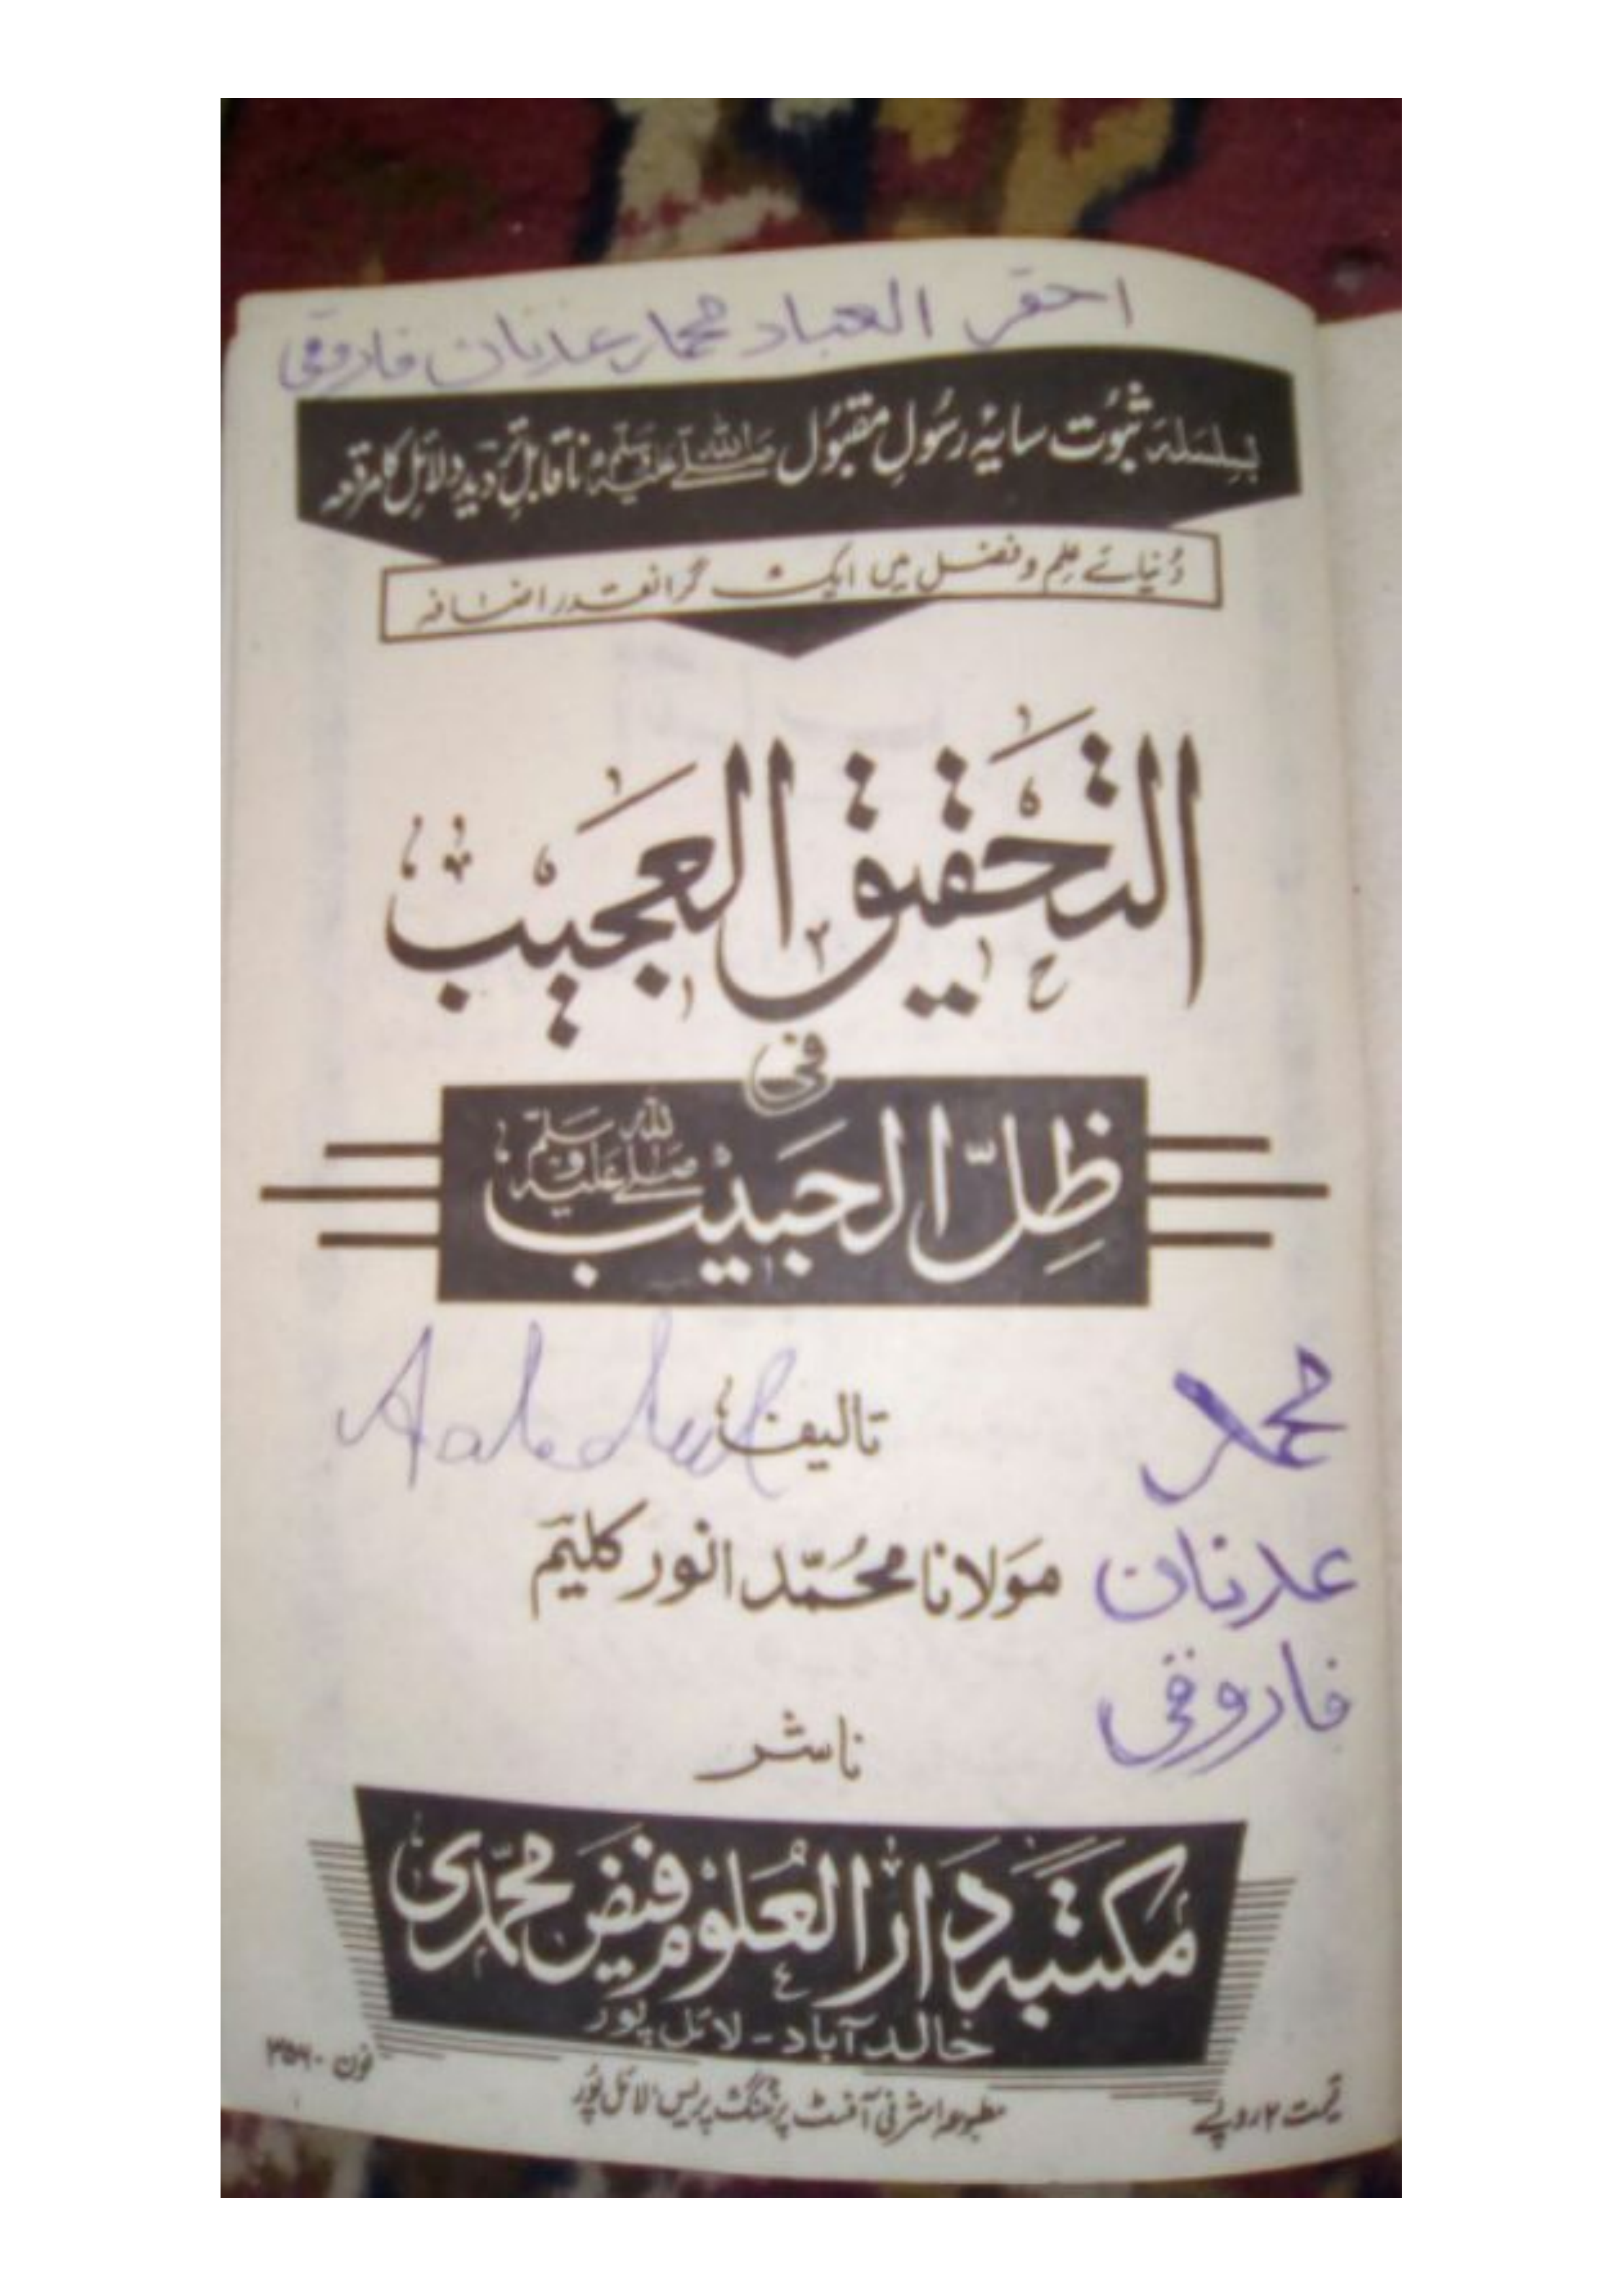 احقر العباد محمد عدنان فاروقی
بسلسلہ ثبوت سایۂ رسولِ مقبول صلی اللہ علیہ وسلم ناقابلِ تردید دلائل کا مرقعہ
دُنیائے عِلم و فضل میں ایک گرانقدر اضافہ
التحقیق العجیب
فی
ظِلّ الحبیب صلی اللہ علیہ وسلم
تالیف
محمد
مولانا محمّد انور کلیم
عدنان
فاروقی
ناشر
مکتبہ دارالعلوم فیض محمدی
خالد آباد - لائل پور
قیمت ۲ روپے
مطبوعہ اشرفی آفسٹ پرنٹنگ پریس لائل پور
فون